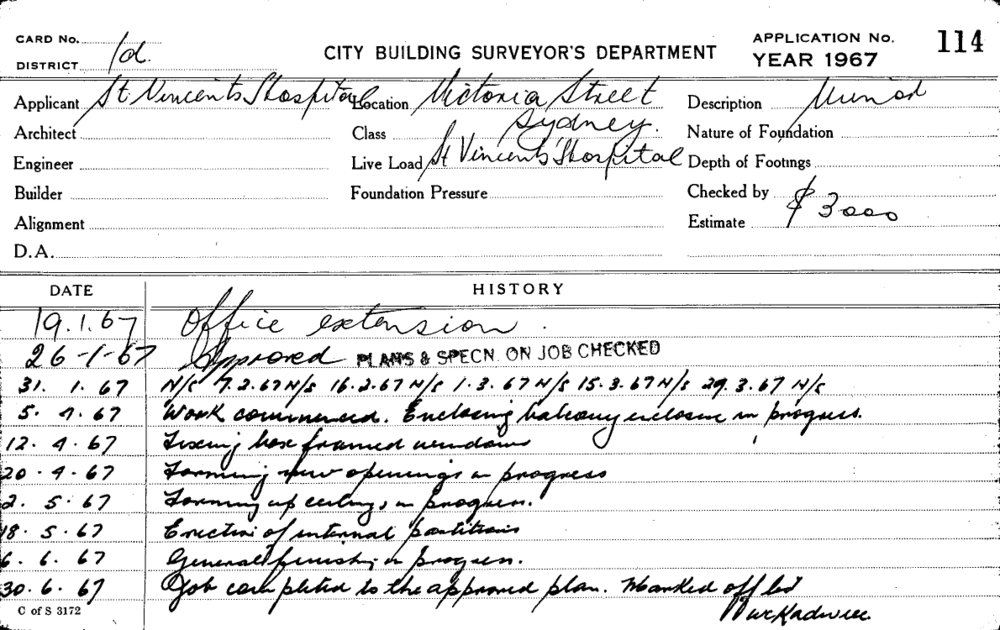 CARD No.
DISTRICT 1d.
CITY BUILDING SURVEYOR'S DEPARTMENT
APPLICATION No. 114
YEAR 1967
Applicant St Vincents Hospital Location Victoria Street Description
Sydney.
Architect Class Nature of Foundation
Engineer Live Load St Vincents Hospital Depth of Footings
Builder Foundation Pressure Checked by
Alignment Estimate $ 3000
D.A.
DATE HISTORY
19.1.67 Office extension.
26-1-67 Approved PLANS & SPECN. ON JOB CHECKED
31. 1. 67 N/S 7.2.67 N/S 16.2.67 N/S 1.3.67 N/S 15.3.67 N/S 29.3.67 N/S
5. 4. 67 Work commenced. Enclosing balcony enclosure in progress.
12. 4. 67 Fixing box framed windows
20. 4. 67 Forming new openings in progress
2. 5. 67 Forming up ceilings in progress.
18. 5. 67 Erection of internal partitions
6. 6. 67 General finishing in progress.
30. 6. 67 Job completed to the approved plan. Marked off
C of S 3172